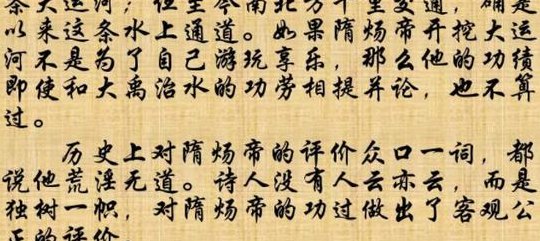 条大运河；但至今南北方千里交通，确是
以来这条水上通道。如果隋炀帝开挖大运
河不是为了自己游玩享乐，那么他的功绩
即使和大禹治水的功劳相提并论，也不算
过。
历史上对隋炀帝的评价众口一词，都
说他荒淫无道。诗人没有人云亦云，而是
独树一帜，对隋炀帝的功过做出了客观公
正的评价